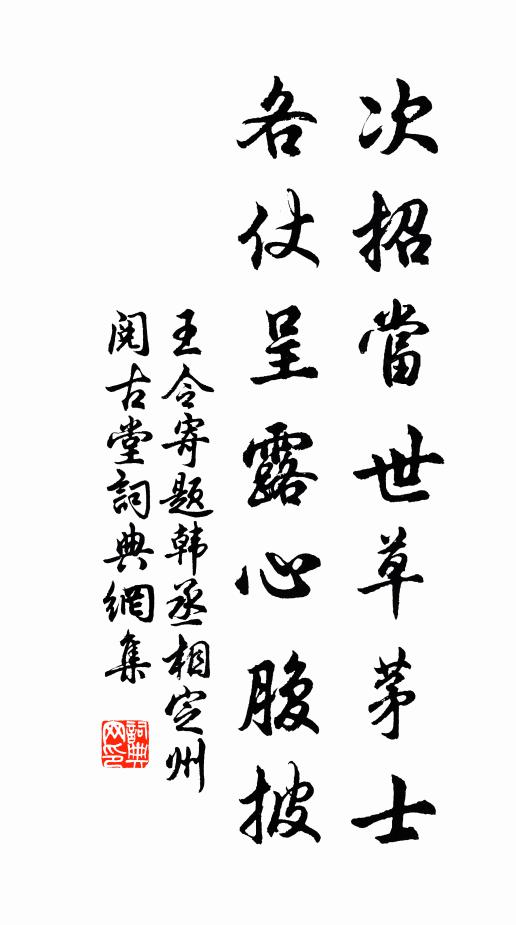 次招當世草茅士
各仗呈露心腹披
王令寄题韩丞相定州
阅古堂詞典網集
詞典網印